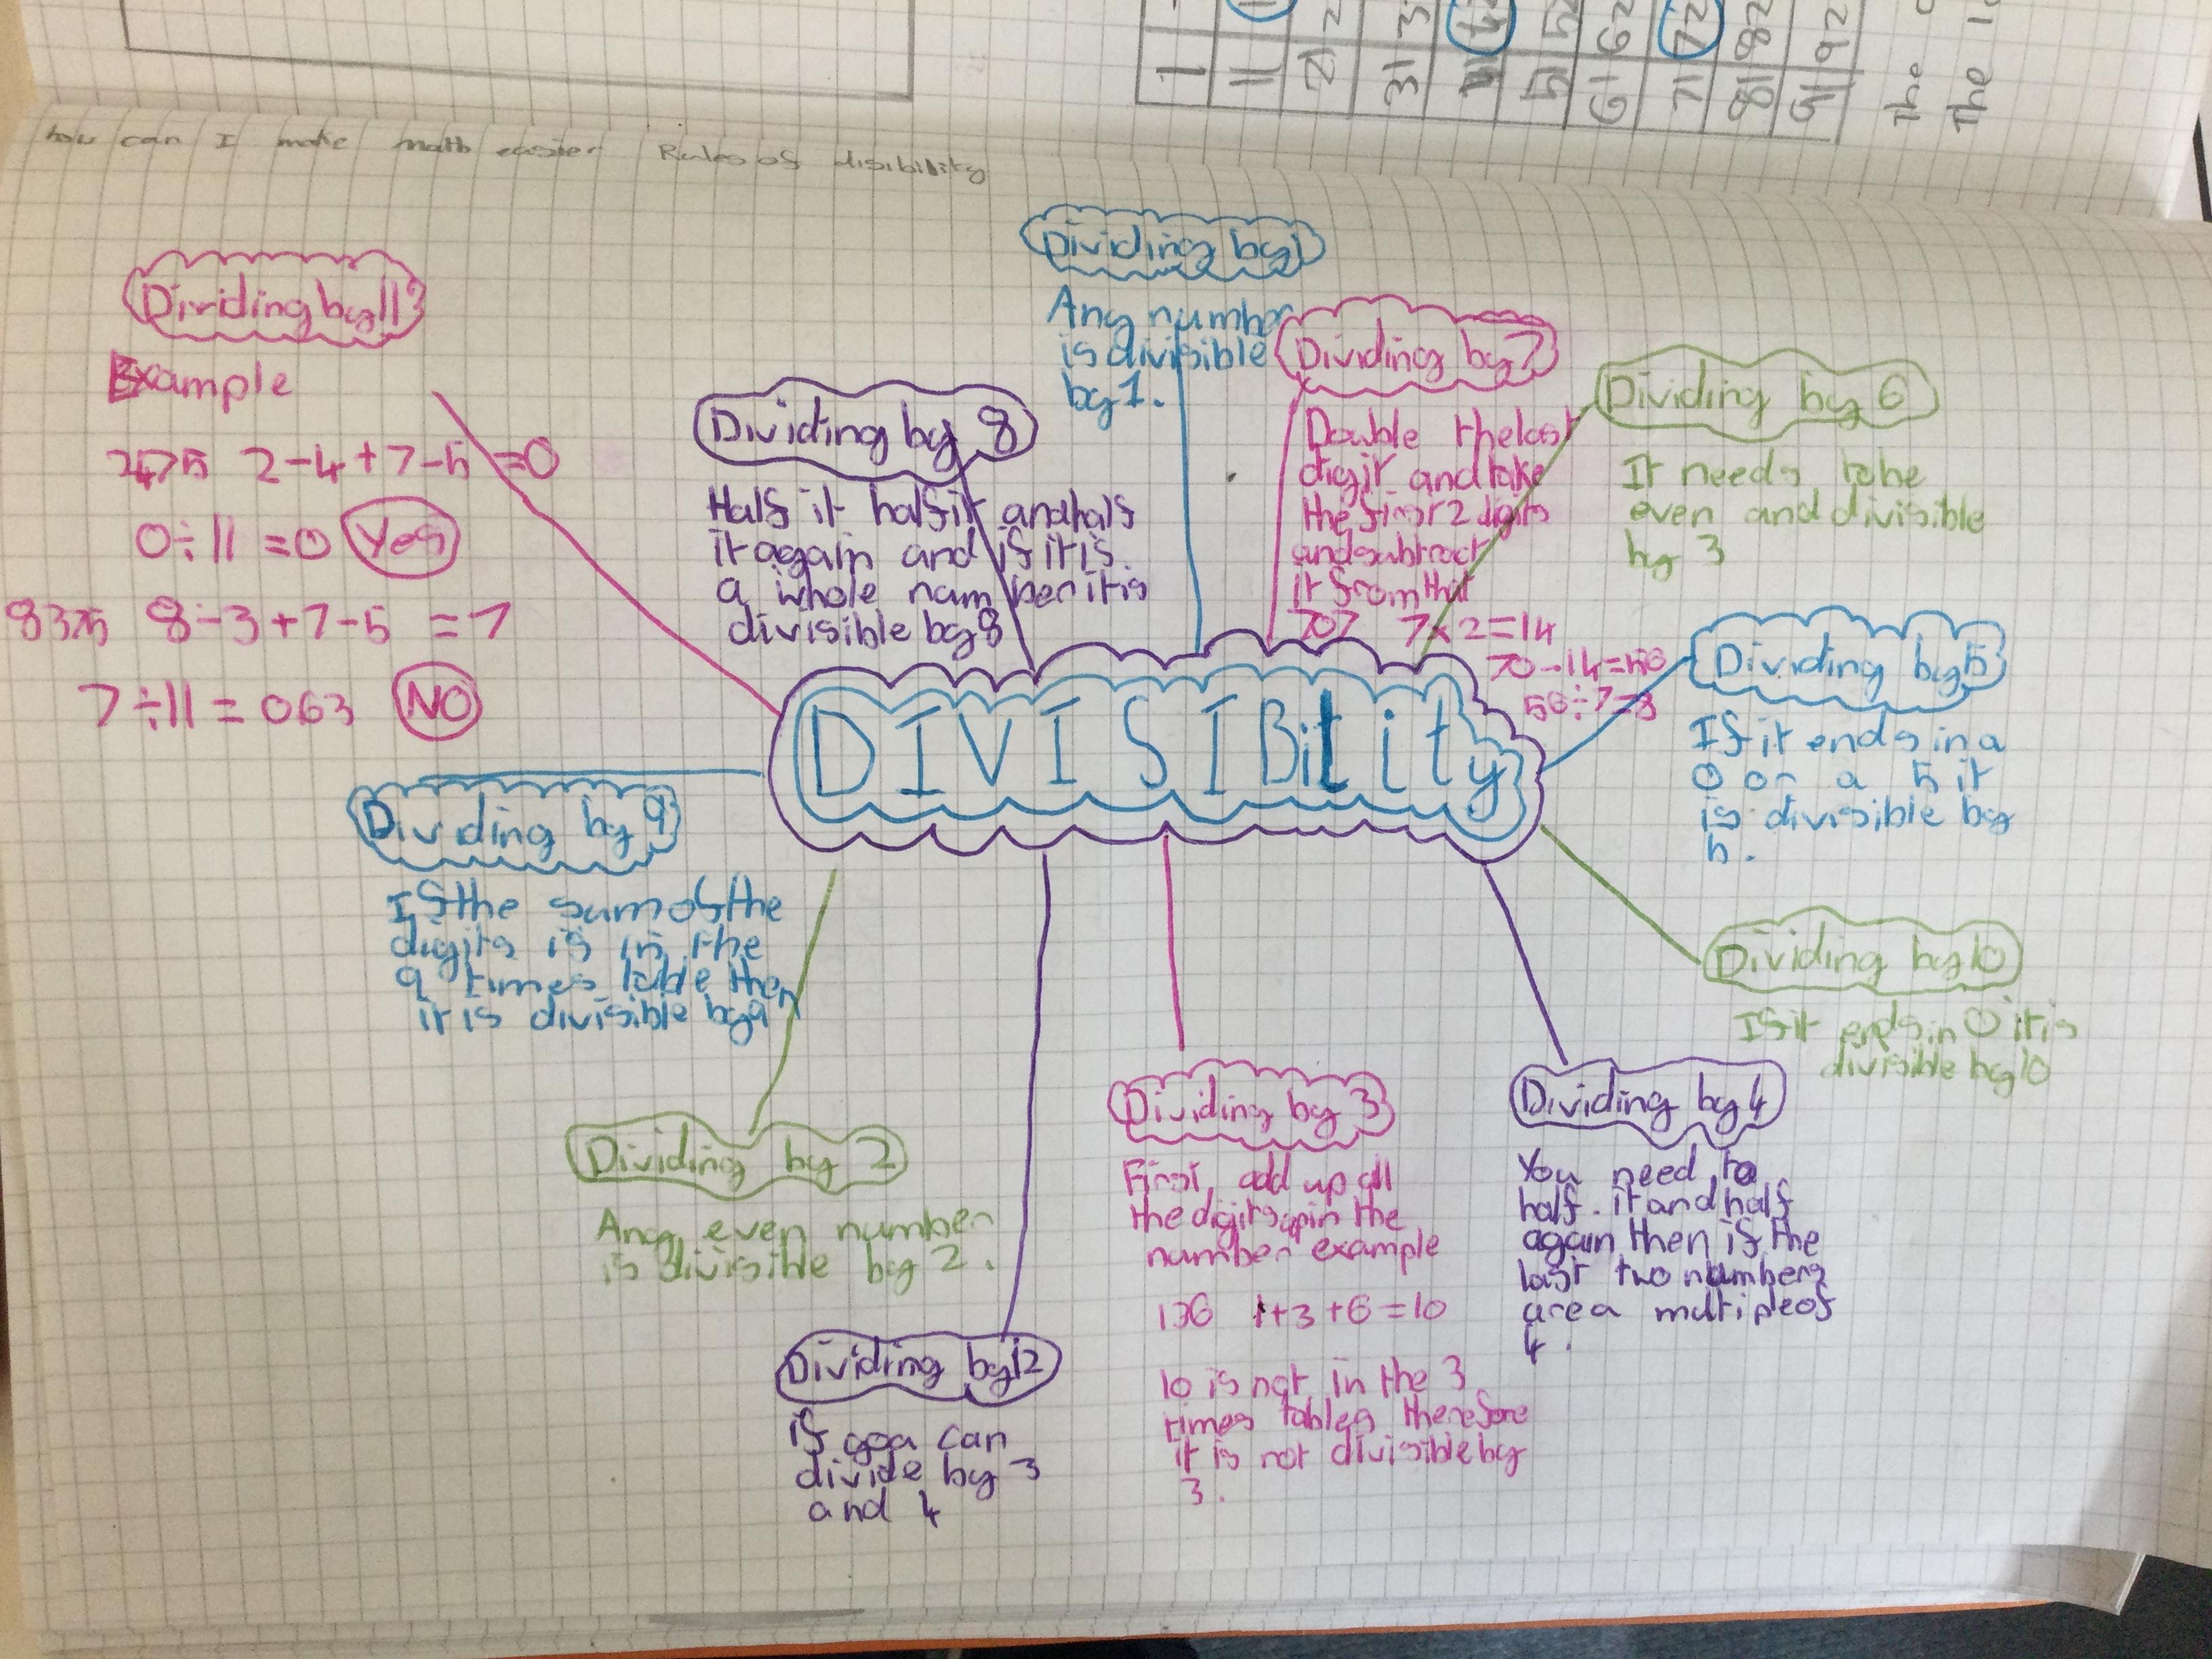 1
11
21 2
31 3
41 42
51 52
61 62
71 72
81 82
91 92
The
The
how can I make math easier Rules of disibility
Dividing by 11
Example
2475 2-4+7-5 =0
0÷11 =0 Yes
8375 8-3+7-5 =7
7÷11 = 063 NO
Dividing by 8
Half it half it and half
it again and if it is
a whole number it is
divisible by 8
Dividing by 1
Any number
is divisible
by 1.
Dividing by 7
Double the last
digit and take
the first 2 digits
and subtract
it from that
707 7x2=14
70-14=56
56÷7=8
Dividing by 6
It needs to be
even and divisible
by 3
Dividing by 5
If it ends in a
0 or a 5 it
is divisible by
5.
DIVISIBility
Dividing by 9
If the sum of the
digits is in the
9 times table then
it is divisible by 9
Dividing by 10
If it ends in 0 it is
divisible by 10
Dividing by 2
Any even number
is divisible by 2.
Dividing by 12
if you can
divide by 3
and 4
Dividing by 3
First add up all
the digits in the
number example
136 1+3+6=10
10 is not in the 3
times tables therefore
it is not divisible by
3.
Dividing by 4
You need to
half it and half
again then if the
last two numbers
are a multiple of
4.